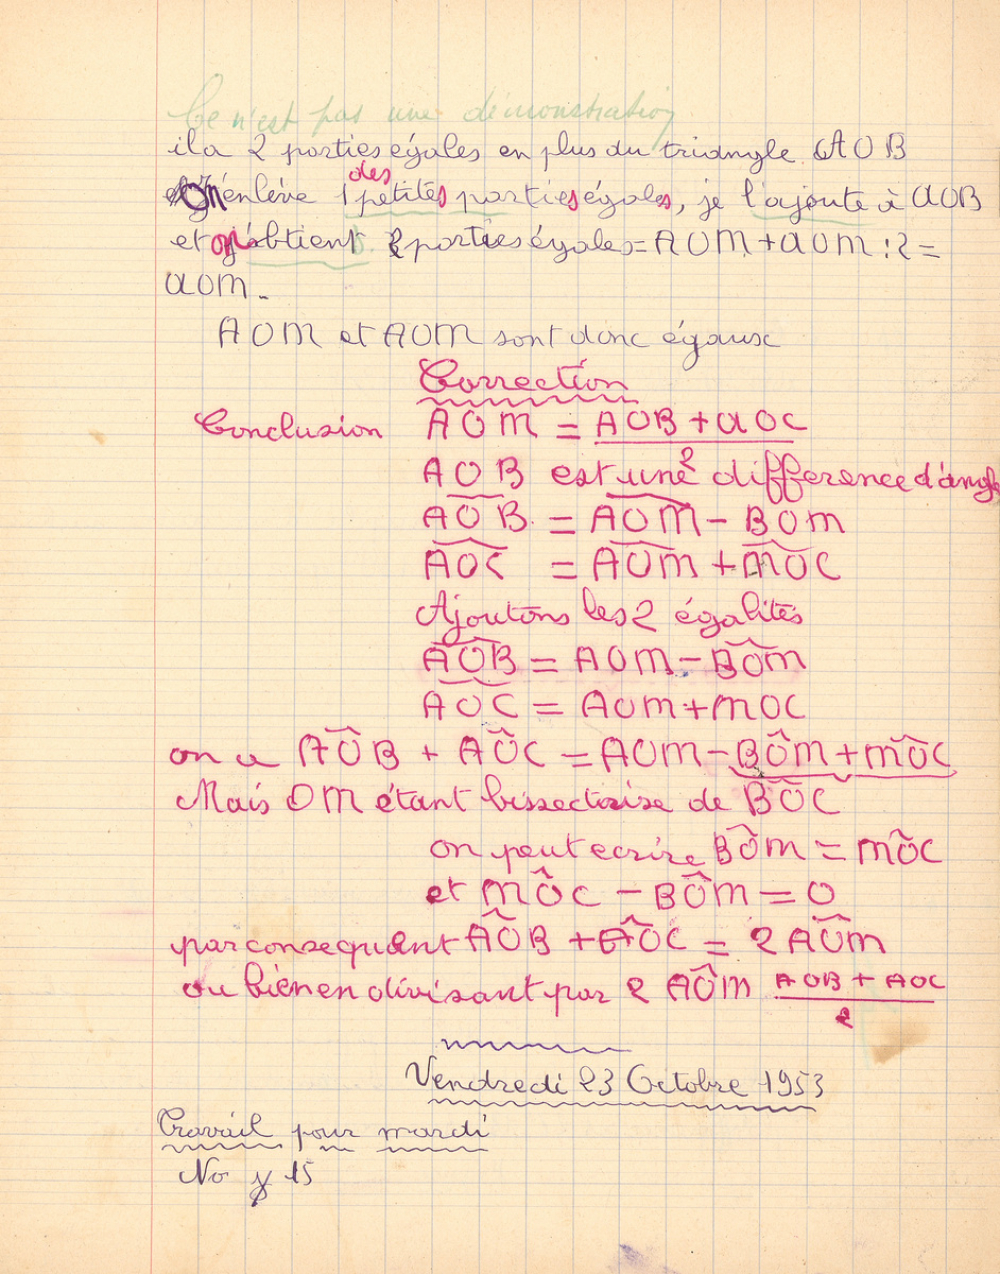 Ce n'est pas une démonstration
il a 2 parties égales en plus du triangle AOB
On enlève 1 des petites parties égales, je l'ajoute à AOB
et on obtient 2 parties égales = AOM + AOM : 2 =
AOM.
AOM et AOM sont donc égaux
Correction
Conclusion AOM = AOB + AOC
2
AOB est une différence d'angle
AOB = AOM - BOM
AOC = AOM + MOC
Ajoutons les 2 égalités
AOB = AOM - BOM
AOC = AOM + MOC
on a AOB + AOC = AOM - BOM + MOC
Mais OM étant bissectrise de BOC
on peut ecrire BOM = MOC
et MOC - BOM = 0
par consequent AOB + AOC = 2 AOM
ou bien en divisant par 2 AOM AOB + AOC
2
Vendredi 23 Octobre 1953
Travail pour mardi
No 15